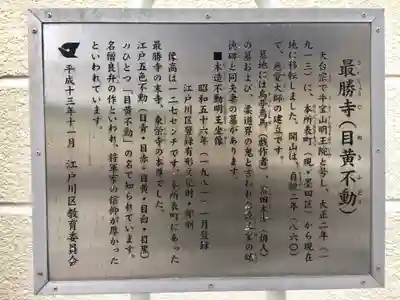 最勝寺(目黄不動)
さいしょうじ めきふどう
天台宗で牛宝山明王院と号し、大正二年(一
九一三)に、本所表町(現・墨田区)から現在
地に移転しました。開山は、貞観二年(八六〇)
で、慈覚大師の建立です。
墓地には(戯作者)、(俳人)
の墓および、柔道界の鬼と言われた
徳碑と同夫妻の墓があります。
■木造不動明王坐像
昭和五十六年(一九八一)一月登録
江戸川区登録有形文化財・彫刻
像高は一二七センチです。本所表町にあった
最勝寺の末寺、東栄寺の本尊でした。
江戸五色不動(目青・目赤・目黄・目白・目黒)
のひとつ「目黄不動」の名で知られています。
名僧良弁の作といわれ、将軍家の信仰が厚かった
といわれています。
平成十三年十一月 江戸川区教育委員会